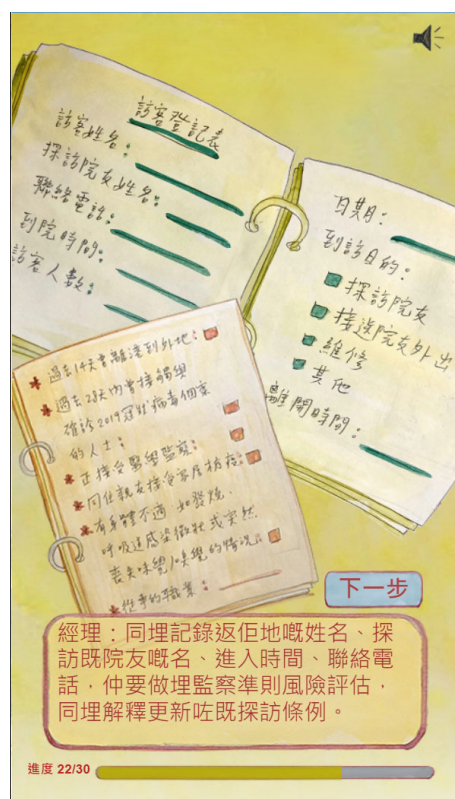 訪客登記表
訪客姓名：
探訪院友姓名：
聯絡電話：
到院時間：
訪客人數：
日期：
到訪目的：
探訪院友
接送院友外出
維修
其他
離開時間：
過去14天曾離港到外地：
過去28天內曾接觸與
確診2019冠狀病毒個案
的人士：
正接合醫學監察：
同住親友接受家居檢疫：
有身體不適，如發燒，
呼吸道感染徵狀或突然
喪失味覺/嗅覺的情況：
從事的職業：
下一步
經理：同埋記錄返佢地嘅姓名、探
訪既院友嘅名、進入時間、聯絡電
話，仲要做埋監察準則風險評估，
同埋解釋更新咗既探訪條例。
進度 22/30